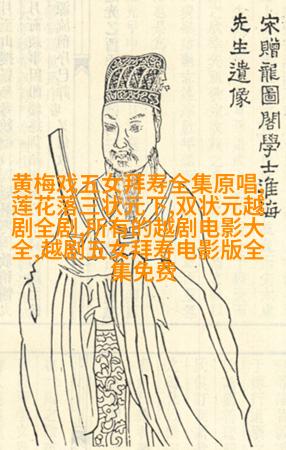 宋贈龍圖閣學士淮海
先生遺像
黄梅戏五女拜寿全集原唱,
莲花落三状元下,双状元越
剧全剧,所有的越剧电影大
全,越剧五女拜寿电影版全
集免费